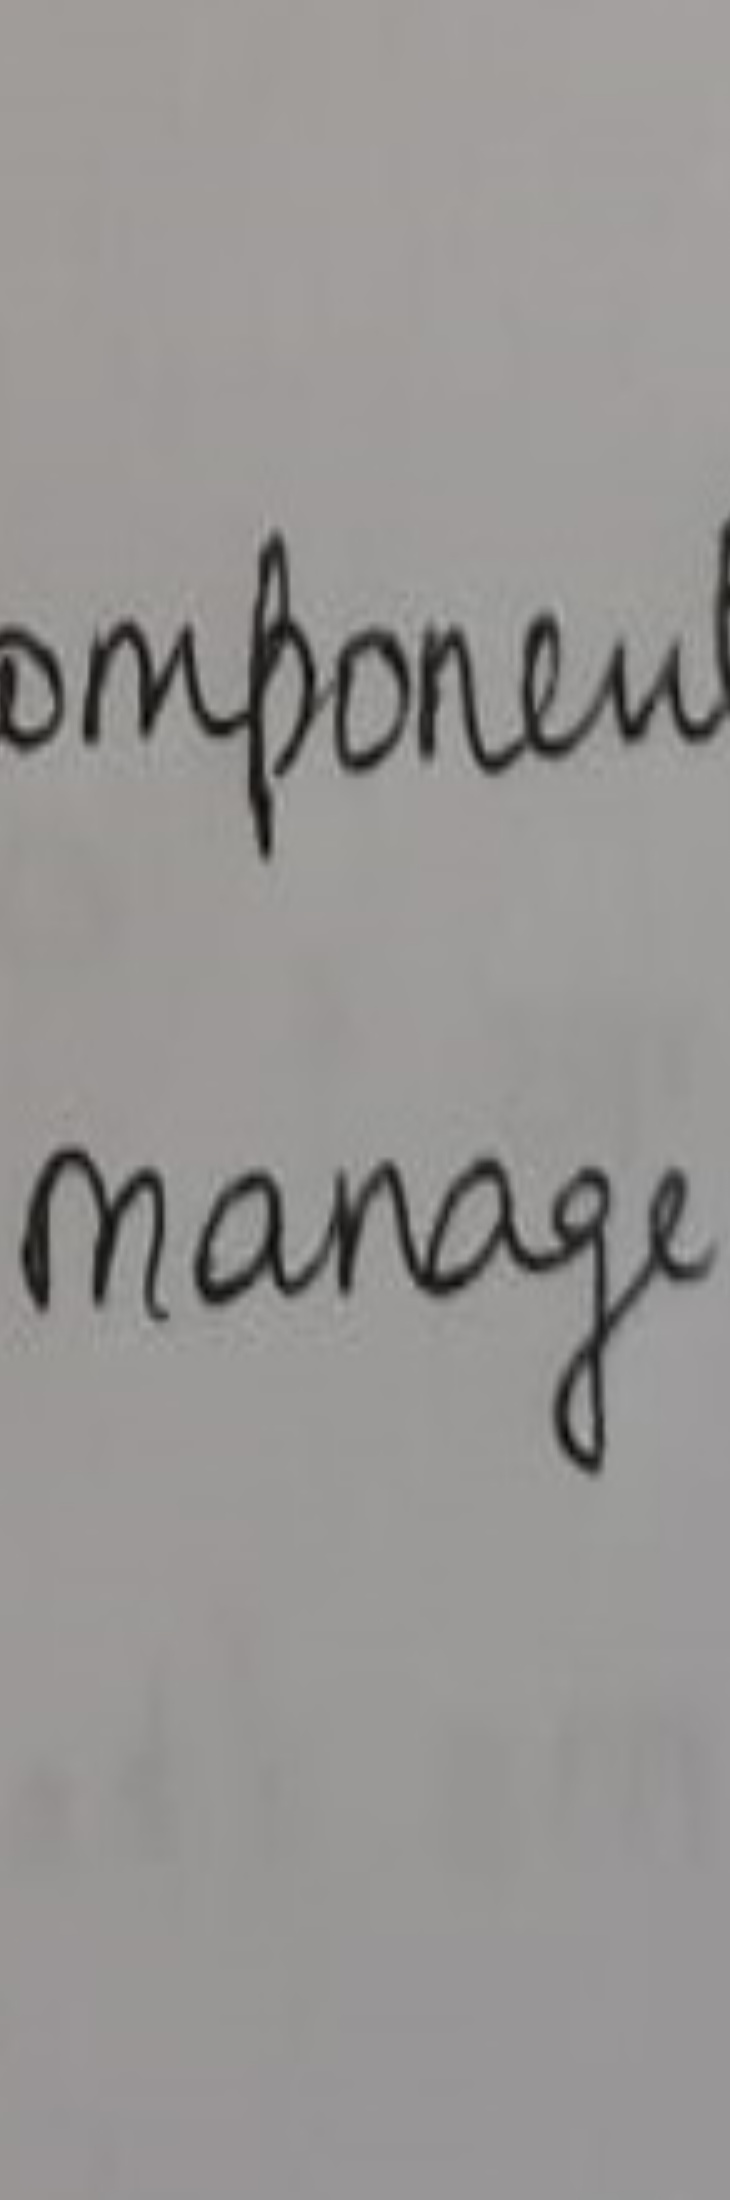 omponent
manage